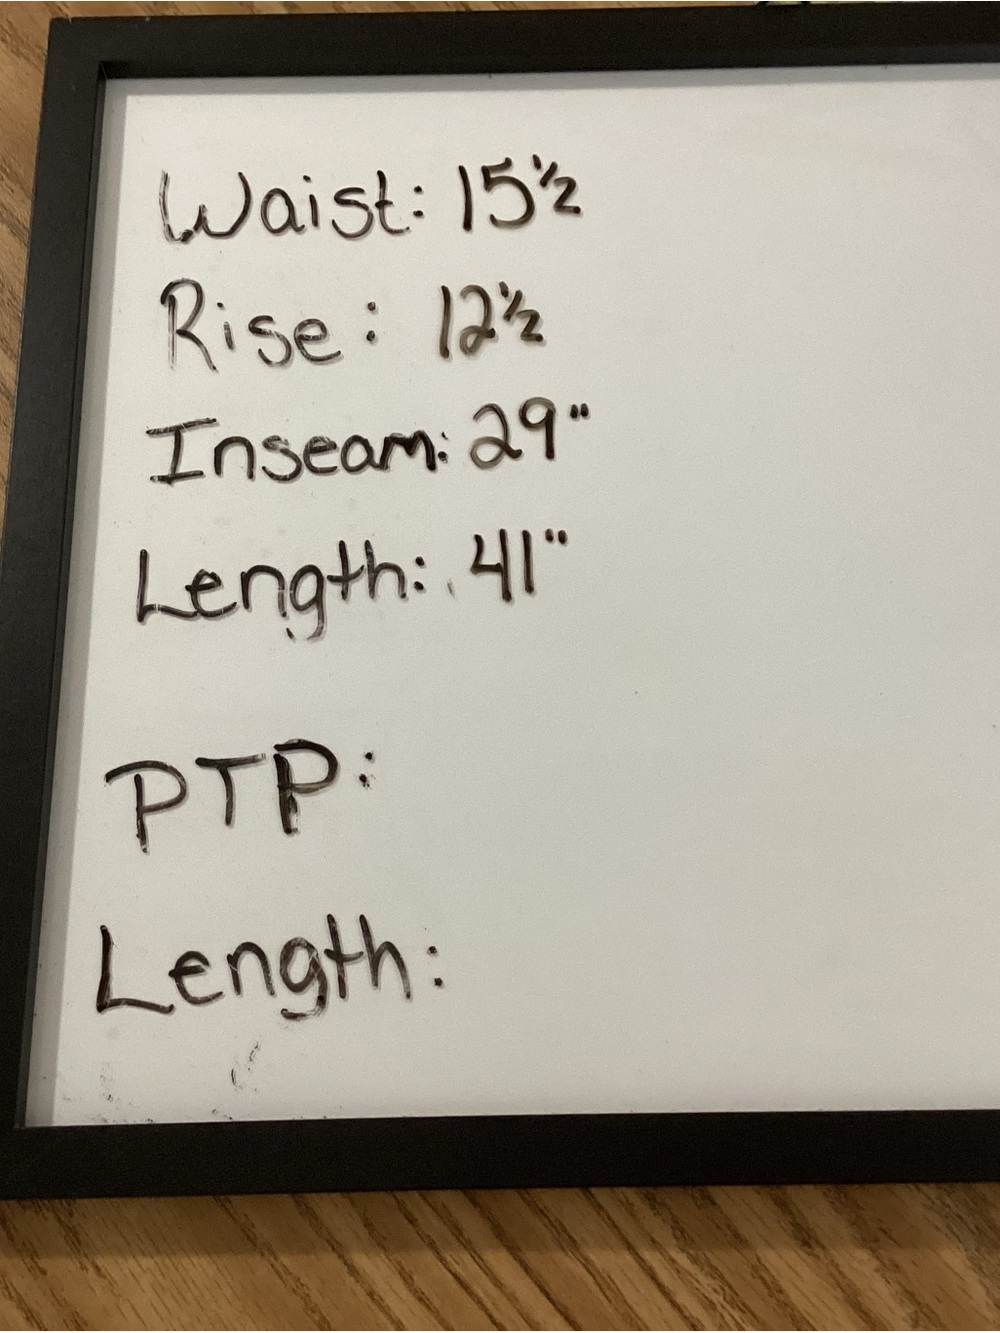 Waist: 15 1/2
Rise: 12 1/2
Inseam: 29"
Length: 41"
PTP:
Length: